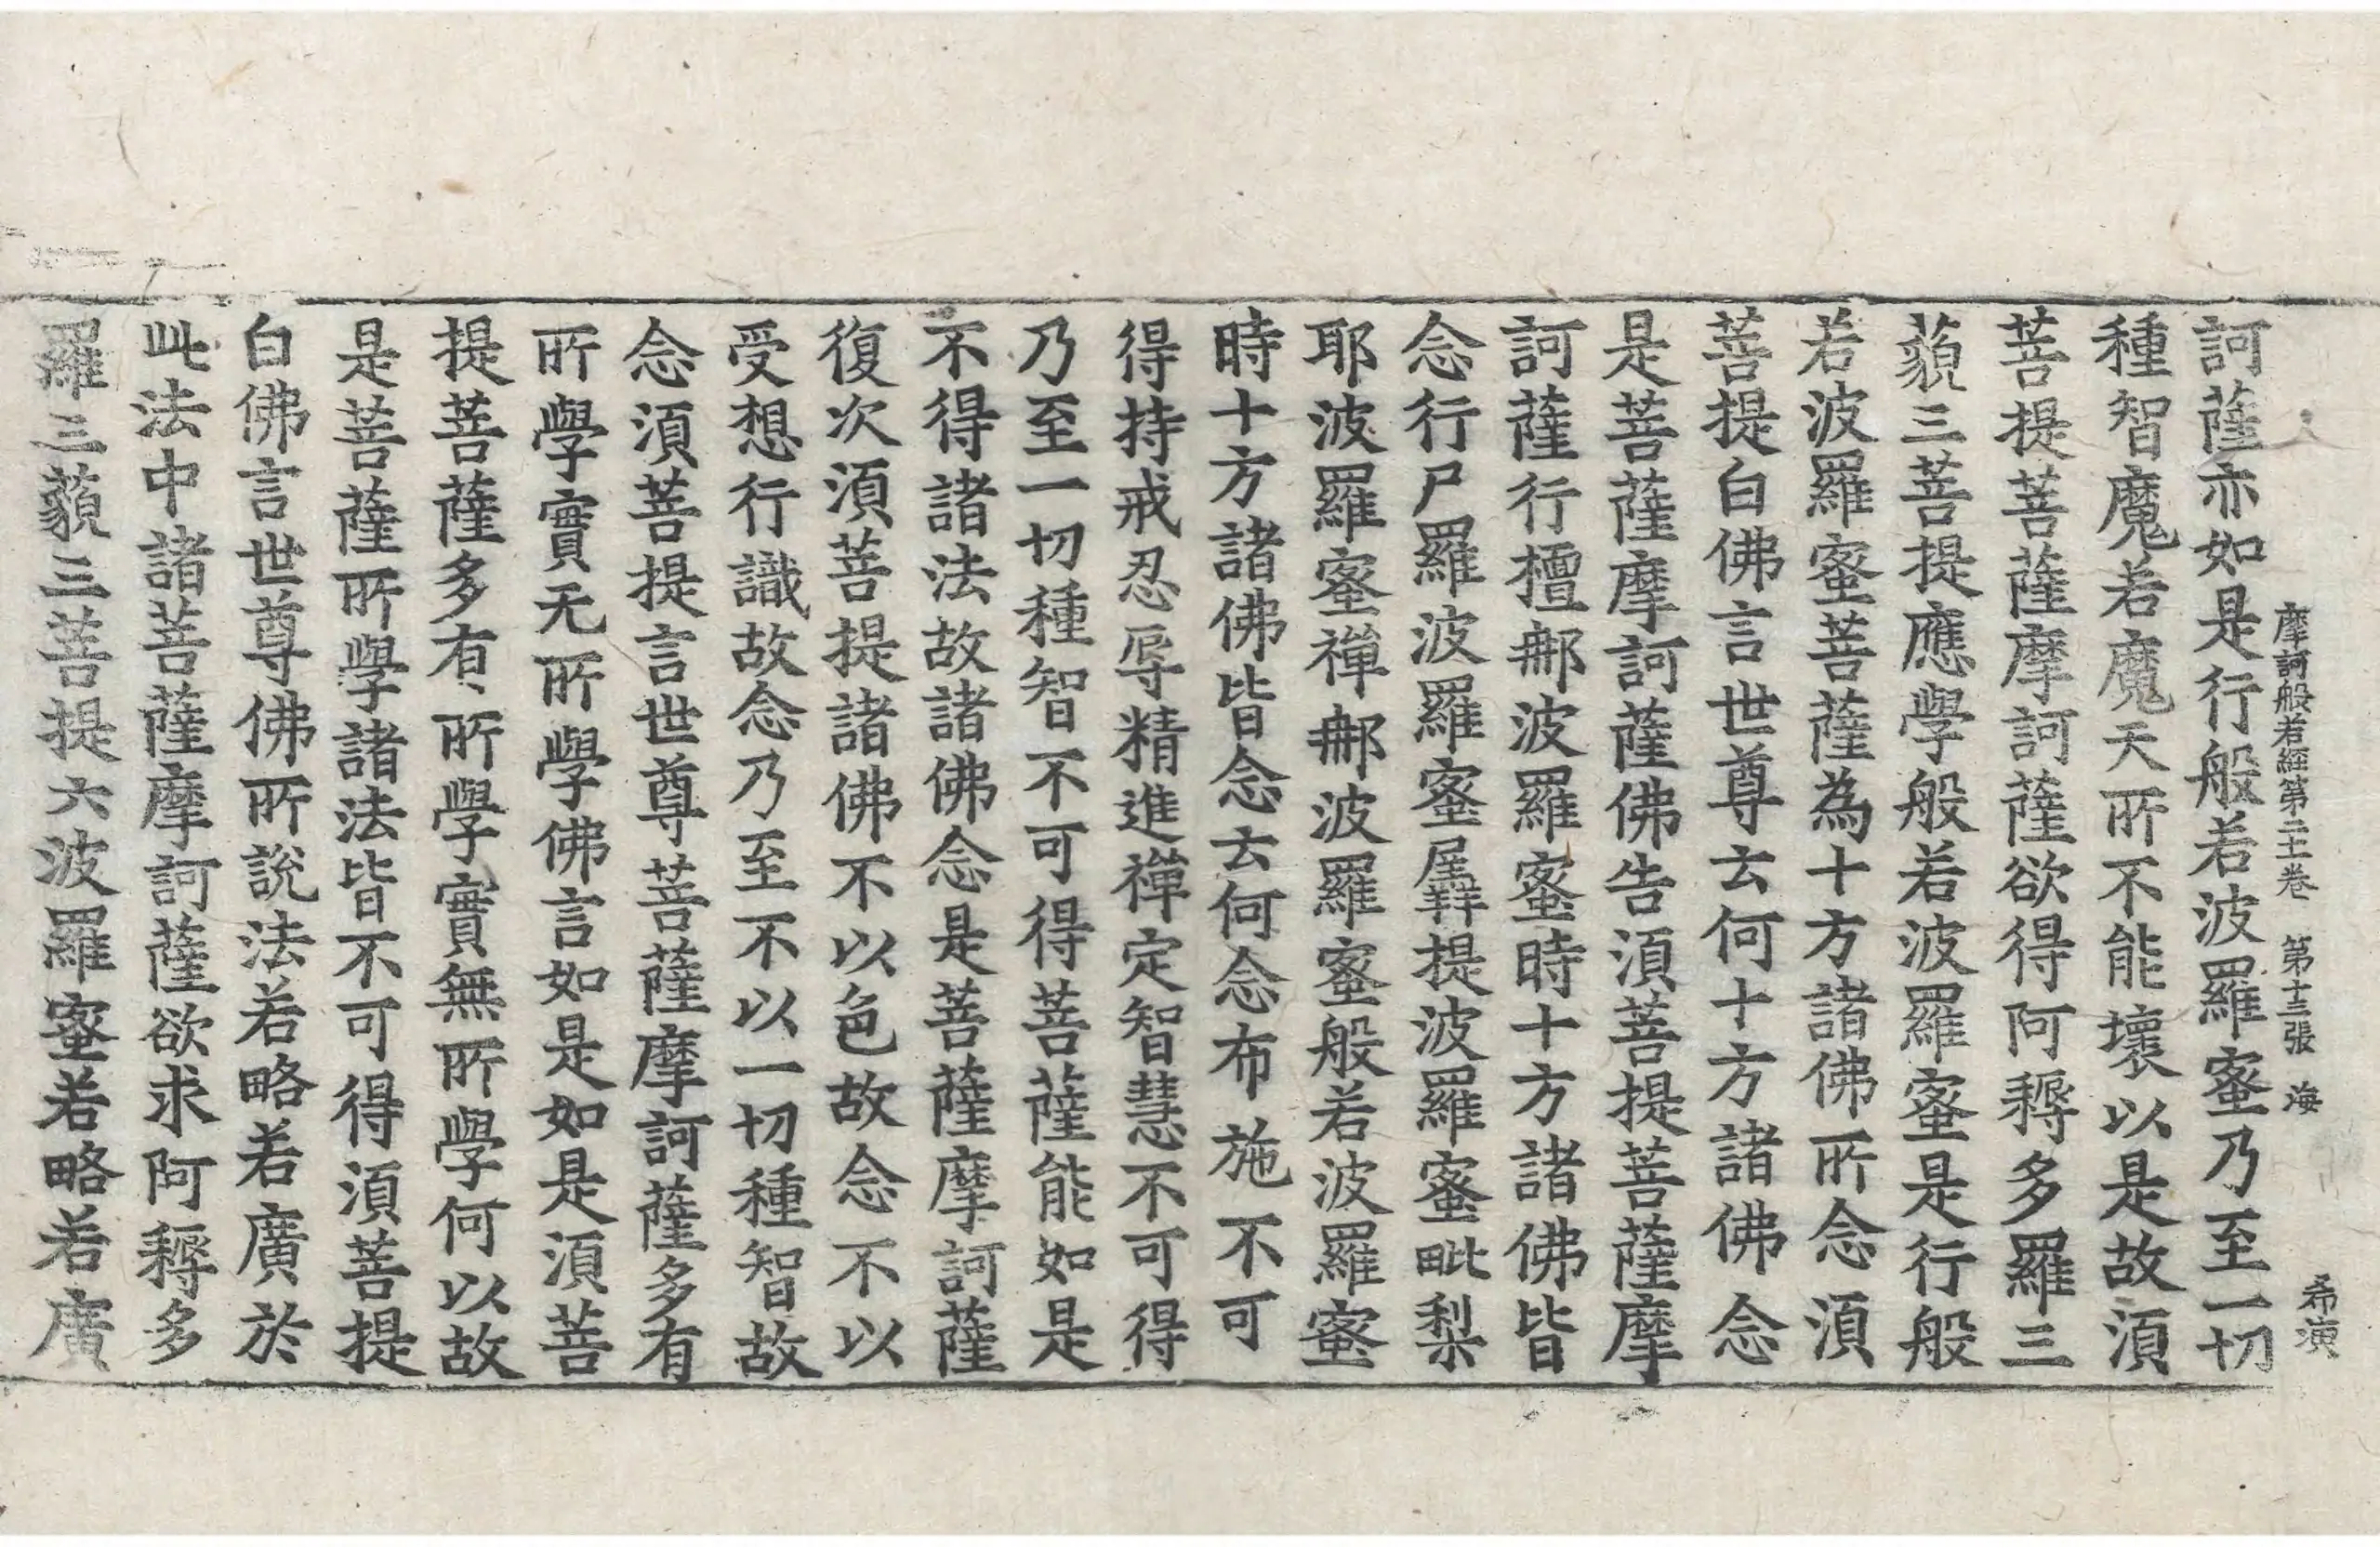 摩訶般若經第二十卷 第十三張 海 希演
訶薩亦如是行般若波羅蜜乃至一切
種智魔若魔天所不能壞以是故須
菩提菩薩摩訶薩欲得阿耨多羅三
藐三菩提應學般若波羅蜜是行般
若波羅蜜菩薩為十方諸佛所念須
菩提白佛言世尊云何十方諸佛念
是菩薩摩訶薩佛告須菩提菩薩摩
訶薩行檀那波羅蜜時十方諸佛皆
念行尸羅波羅蜜羼提波羅蜜毗梨
耶波羅蜜禪那波羅蜜般若波羅蜜
時十方諸佛皆念云何念布施不可
得持戒忍辱精進禪定智慧不可得
乃至一切種智不可得菩薩能如是
不得諸法故諸佛念是菩薩摩訶薩
復次須菩提諸佛不以色故念不以
受想行識故念乃至不以一切種智故
念須菩提言世尊菩薩摩訶薩多有
所學實无所學佛言如是如是須菩
提菩薩多有所學實無所學何以故
是菩薩所學諸法皆不可得須菩提
白佛言世尊佛所說法若略若廣於
此法中諸菩薩摩訶薩欲求阿耨多
羅三藐三菩提六波羅蜜若略若廣